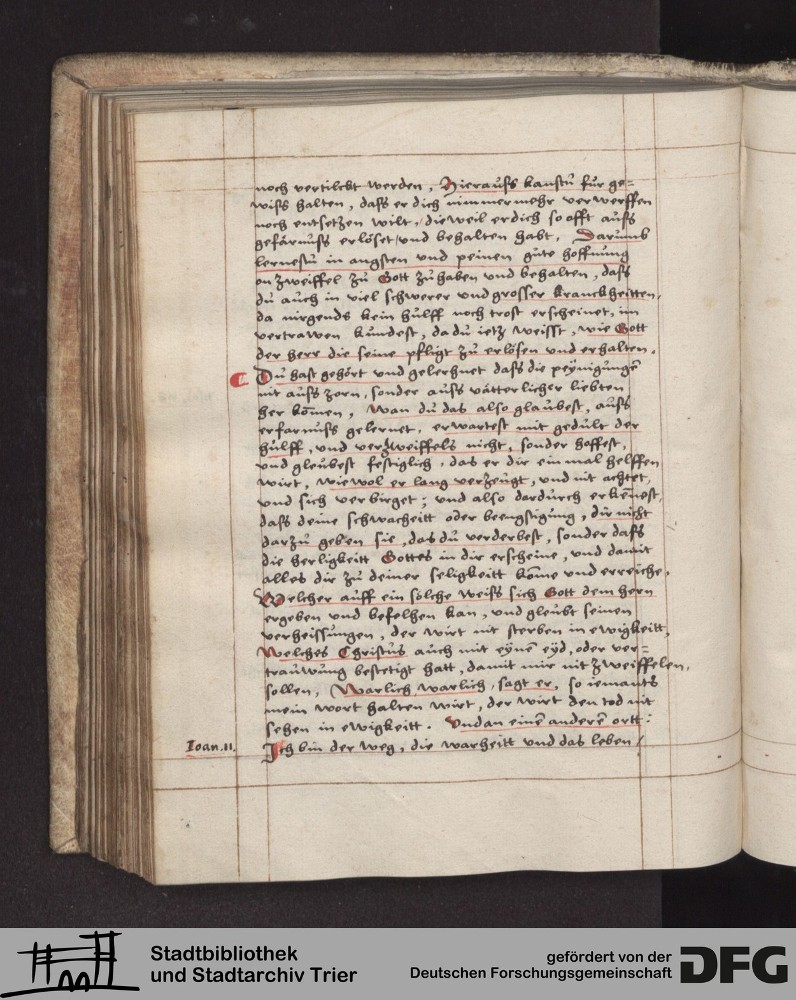 noch vertilckt werden, Hierauss kanstu fur ge=
wiss halten, dass er dich nimmermehr verwerffen
noch entsetzen wilt, dieweil er dich so offt auss
gefärnuss erlöset und behalten habt. Darumb
lernestu in angsten und peinen gute hoffnung
on zweiffel zu Gott zu haben und behalten, dass
du auch in viel schwerer und grosser kranckheitten,
da nirgends kein hülff noch trost erscheinet, im
vertrawen kundest, da du ietz weisst, wie Gott
der herr die seine pfligt zu erlösen und erhalten.
Du hast gehört und gelerhnet dass die peÿnigungē
nit auss zorn, sonder auss vätterlicher liebten
her komen, Wan du das also glaubest, auss
erfarnuss gelernet, erwartest mit gedult der
hülff, und verzweiffels nicht, sonder hoffest,
und gleubest festiglich, das er dir ein mal helffen
wirt, wiewol er lang verzeugt, und nit achtet,
und sich verbirget; und also dardurch erkēnest,
dass deine schwacheitt oder beengstigung, dir nicht
darzu geben sie, das du verderbest, sonder dass
die herligkeitt Gottes in dir erscheine, und damit
alles dir zu deiner seligkeitt kōme und erreiche.
Welcher auff ein solche weiss sich Gott dem hern
ergeben und befelhen kan, und gleubt seinen
verheissungen, der wirt nit sterben in ewigkeitt,
Welches Christus auch mit eÿnē eÿd, oder ver=
trauwung bestetigt hatt, damit mir nit zweiffelen,
sollen, Warlich warlich, sagt er, so iemants
mein wort halten wirt, der wirt den tod nit
sehen in ewigkeitt. Und an einē anderē ortt:
Ioan. 11. Ich bin der weg, die warheitt und das leben,
Stadtbibliothek
und Stadtarchiv Trier
gefördert von der
Deutschen Forschungsgemeinschaft
DFG